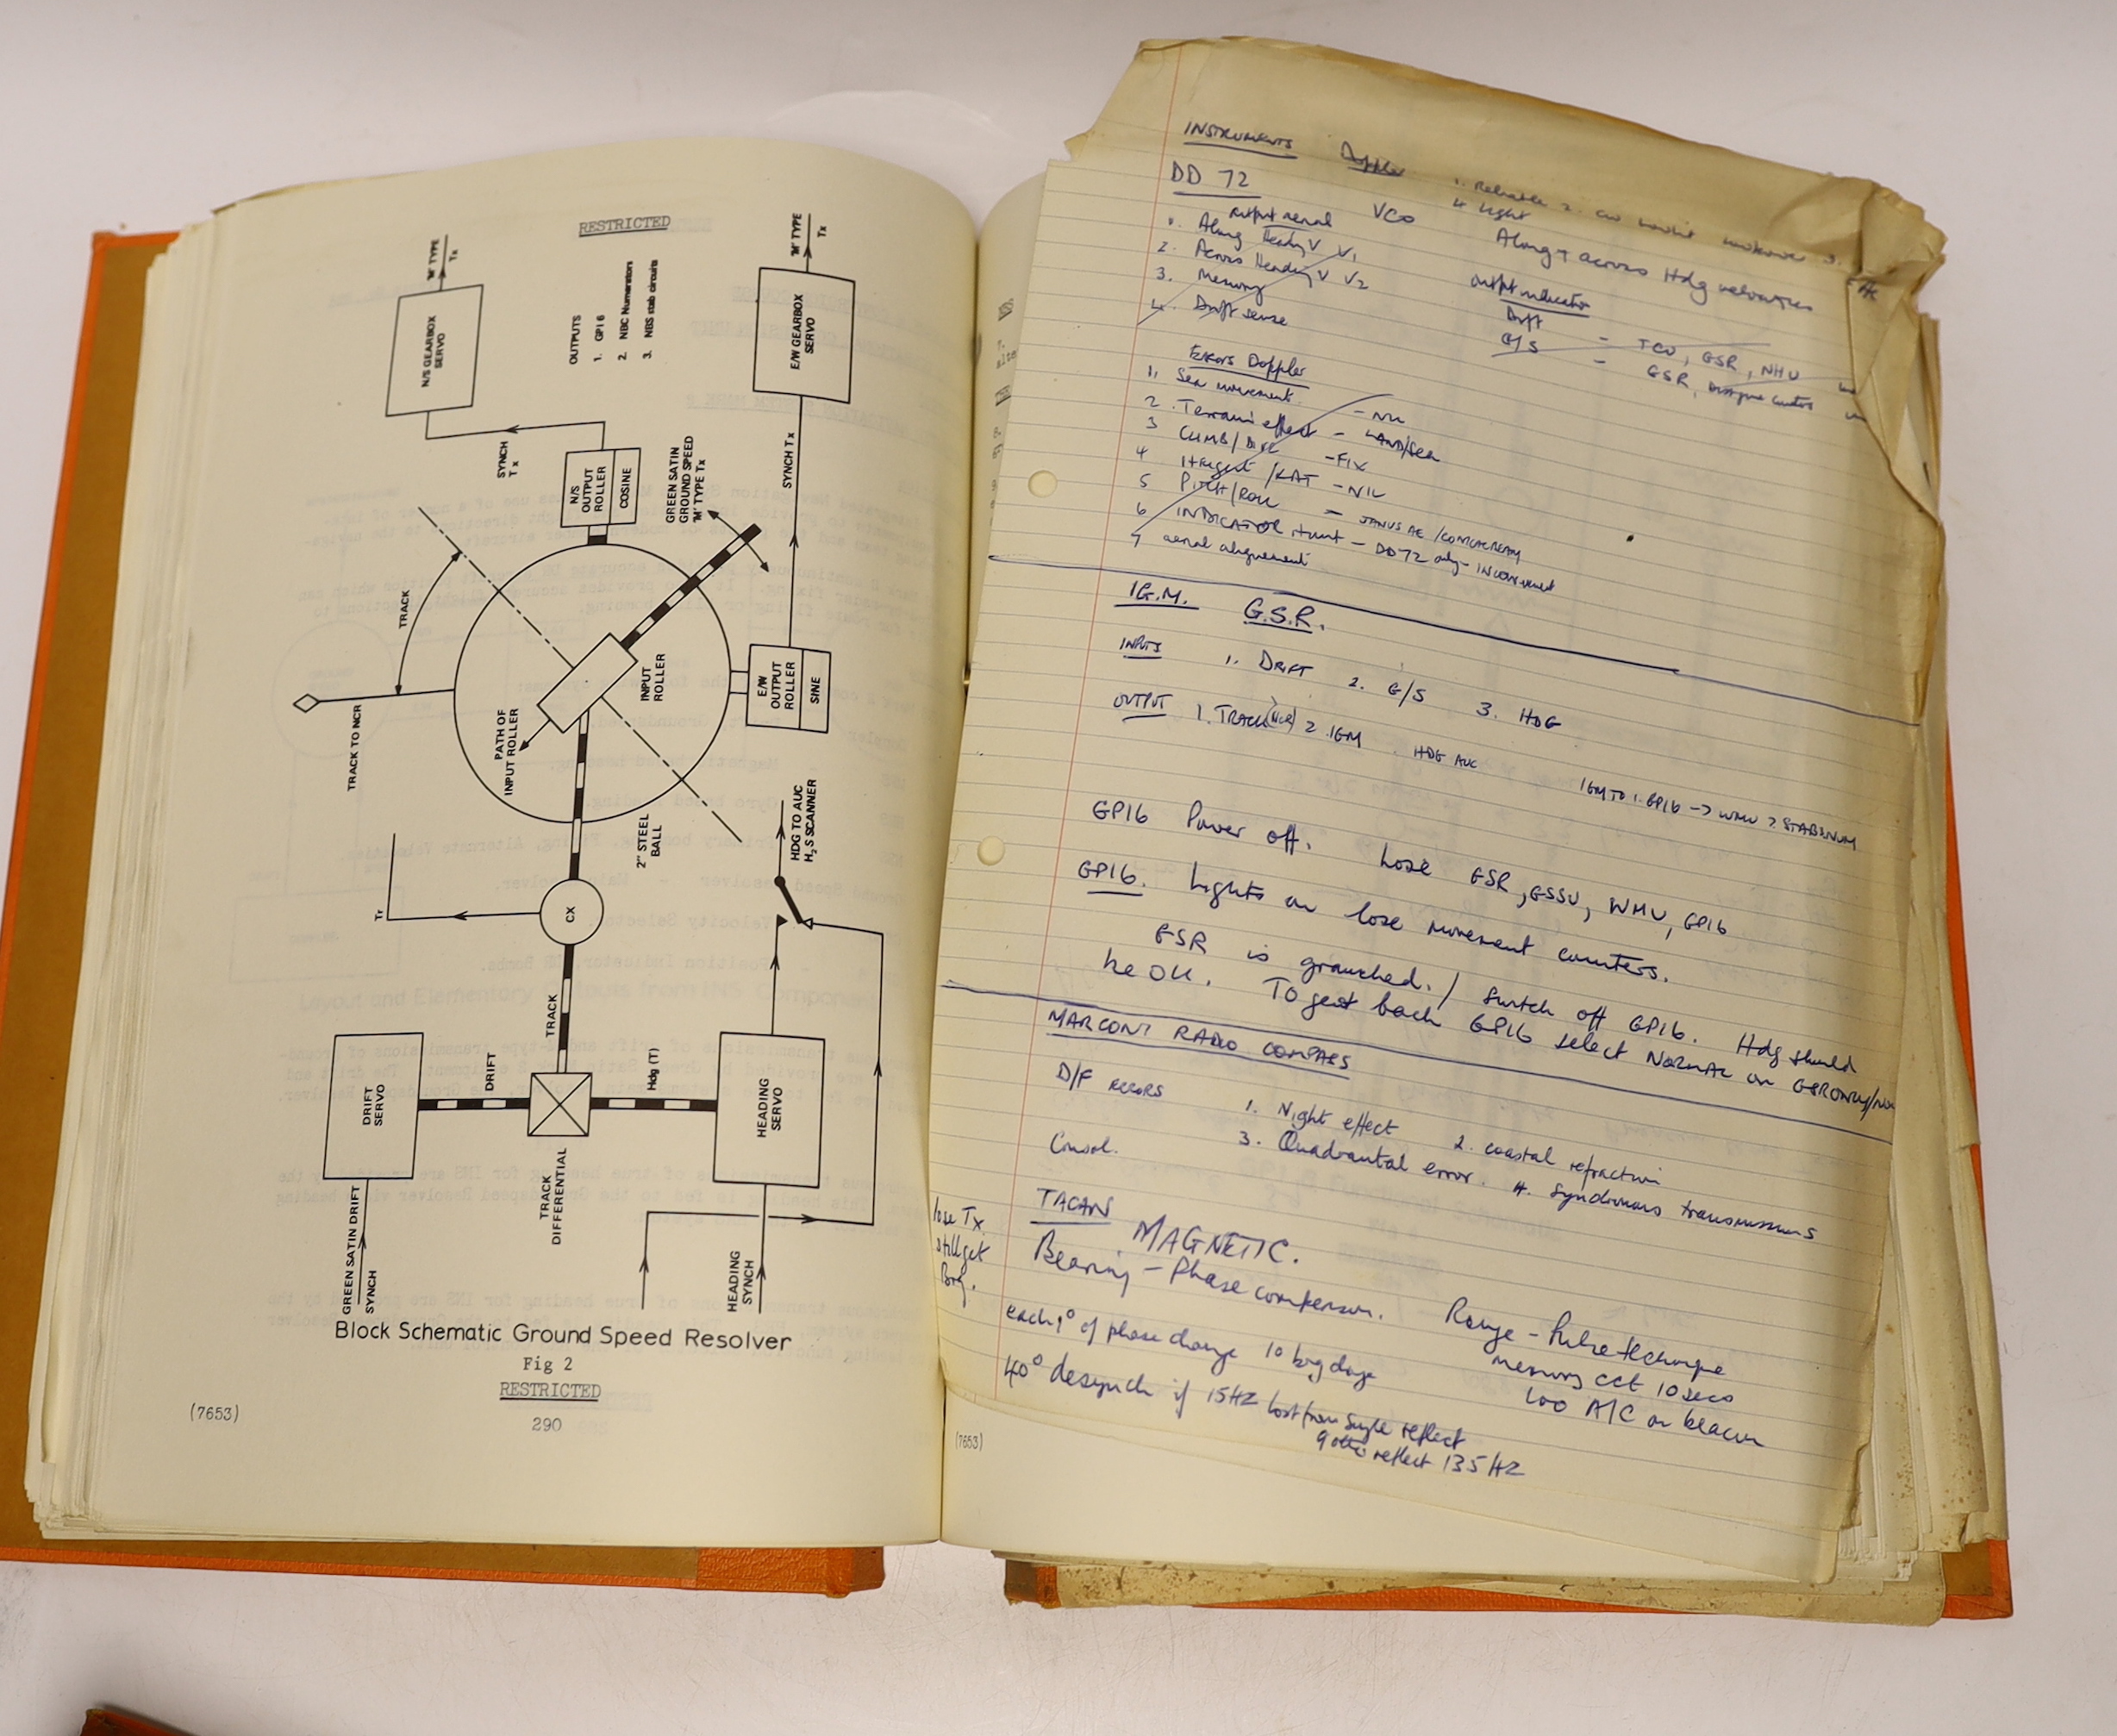 RESTRICTED
'M' TYPE
Tx
N/S GEARBOX
SERVO
OUTPUTS
1. GPI 6
2. NBC Numerators
3. NBS stab circuits
'M' TYPE
Tx
E/W GEARBOX
SERVO
SYNCH
Tx
N/S
OUTPUT
ROLLER
COSINE
GREEN SATIN
GROUND SPEED
'M' TYPE Tx
SYNCH Tx
TRACK
TRACK TO NCR
PATH OF
INPUT ROLLER
INPUT
ROLLER
E/W
OUTPUT
ROLLER
SINE
2" STEEL
BALL
HDG TO AUC
H2S SCANNER
CX
TRACK
DRIFT
SERVO
DRIFT
Hdg (T)
HEADING
SERVO
TRACK
DIFFERENTIAL
GREEN SATIN DRIFT
SYNCH
HEADING
SYNCH
Block Schematic Ground Speed Resolver
Fig 2
RESTRICTED
290
(7653)
INSTRUMENTS Doppler 1. Reliable 2.
4 light
DD 72 VCO Along + across Hdg velocities
output aerial
1. Along Heading V V1
2. Across Heading V V2
3. Memory
4. Drift sense
output indicator
Drift = TCU, GSR, NHU
G/S - GSR,
Errors Doppler
1. Sea movement - NIL
2. Terrain effect - LAND/SEA
3 CLIMB/DIVE - FIX
4 Height/KAT - NIL
5 PITCH/ROLL - JANUS AE
6 INDICATOR Hunt - DD72 only -
7 aerial alignement
IG.M. G.S.R.
INPUTS 1. DRIFT 2. G/S 3. HDG
OUTPUT 1. TRACK (NCR) 2. IGM . HDG AUC
IGM TO 1. GPI6 -> WMU 2. STAB &NUM
GPI6 Power off. Lose GSR, GSSU, WMU, GPI6
GPI6. Lights on lose movement counters.
GSR is graunched. / Switch off GPI6. Hdg should
be OK. To get back GPI6 select NORMAL on
MARCONI RADIO COMPASS
D/F ERRORS 1. Night effect 2. coastal refraction
3. Quadrantal error. 4. Synchronous transmissions
Consol.
lose Tx
still get
Brg.
TACAN MAGNETIC.
Bearing - Phase comparison. Range - Pulse technique
memory cct 10 secs
100 A/C on beacon
each 1° of phase change 10 brg
40° desynch if 15HZ lost from single reflect
9 other reflect 135 HZ
(7653)